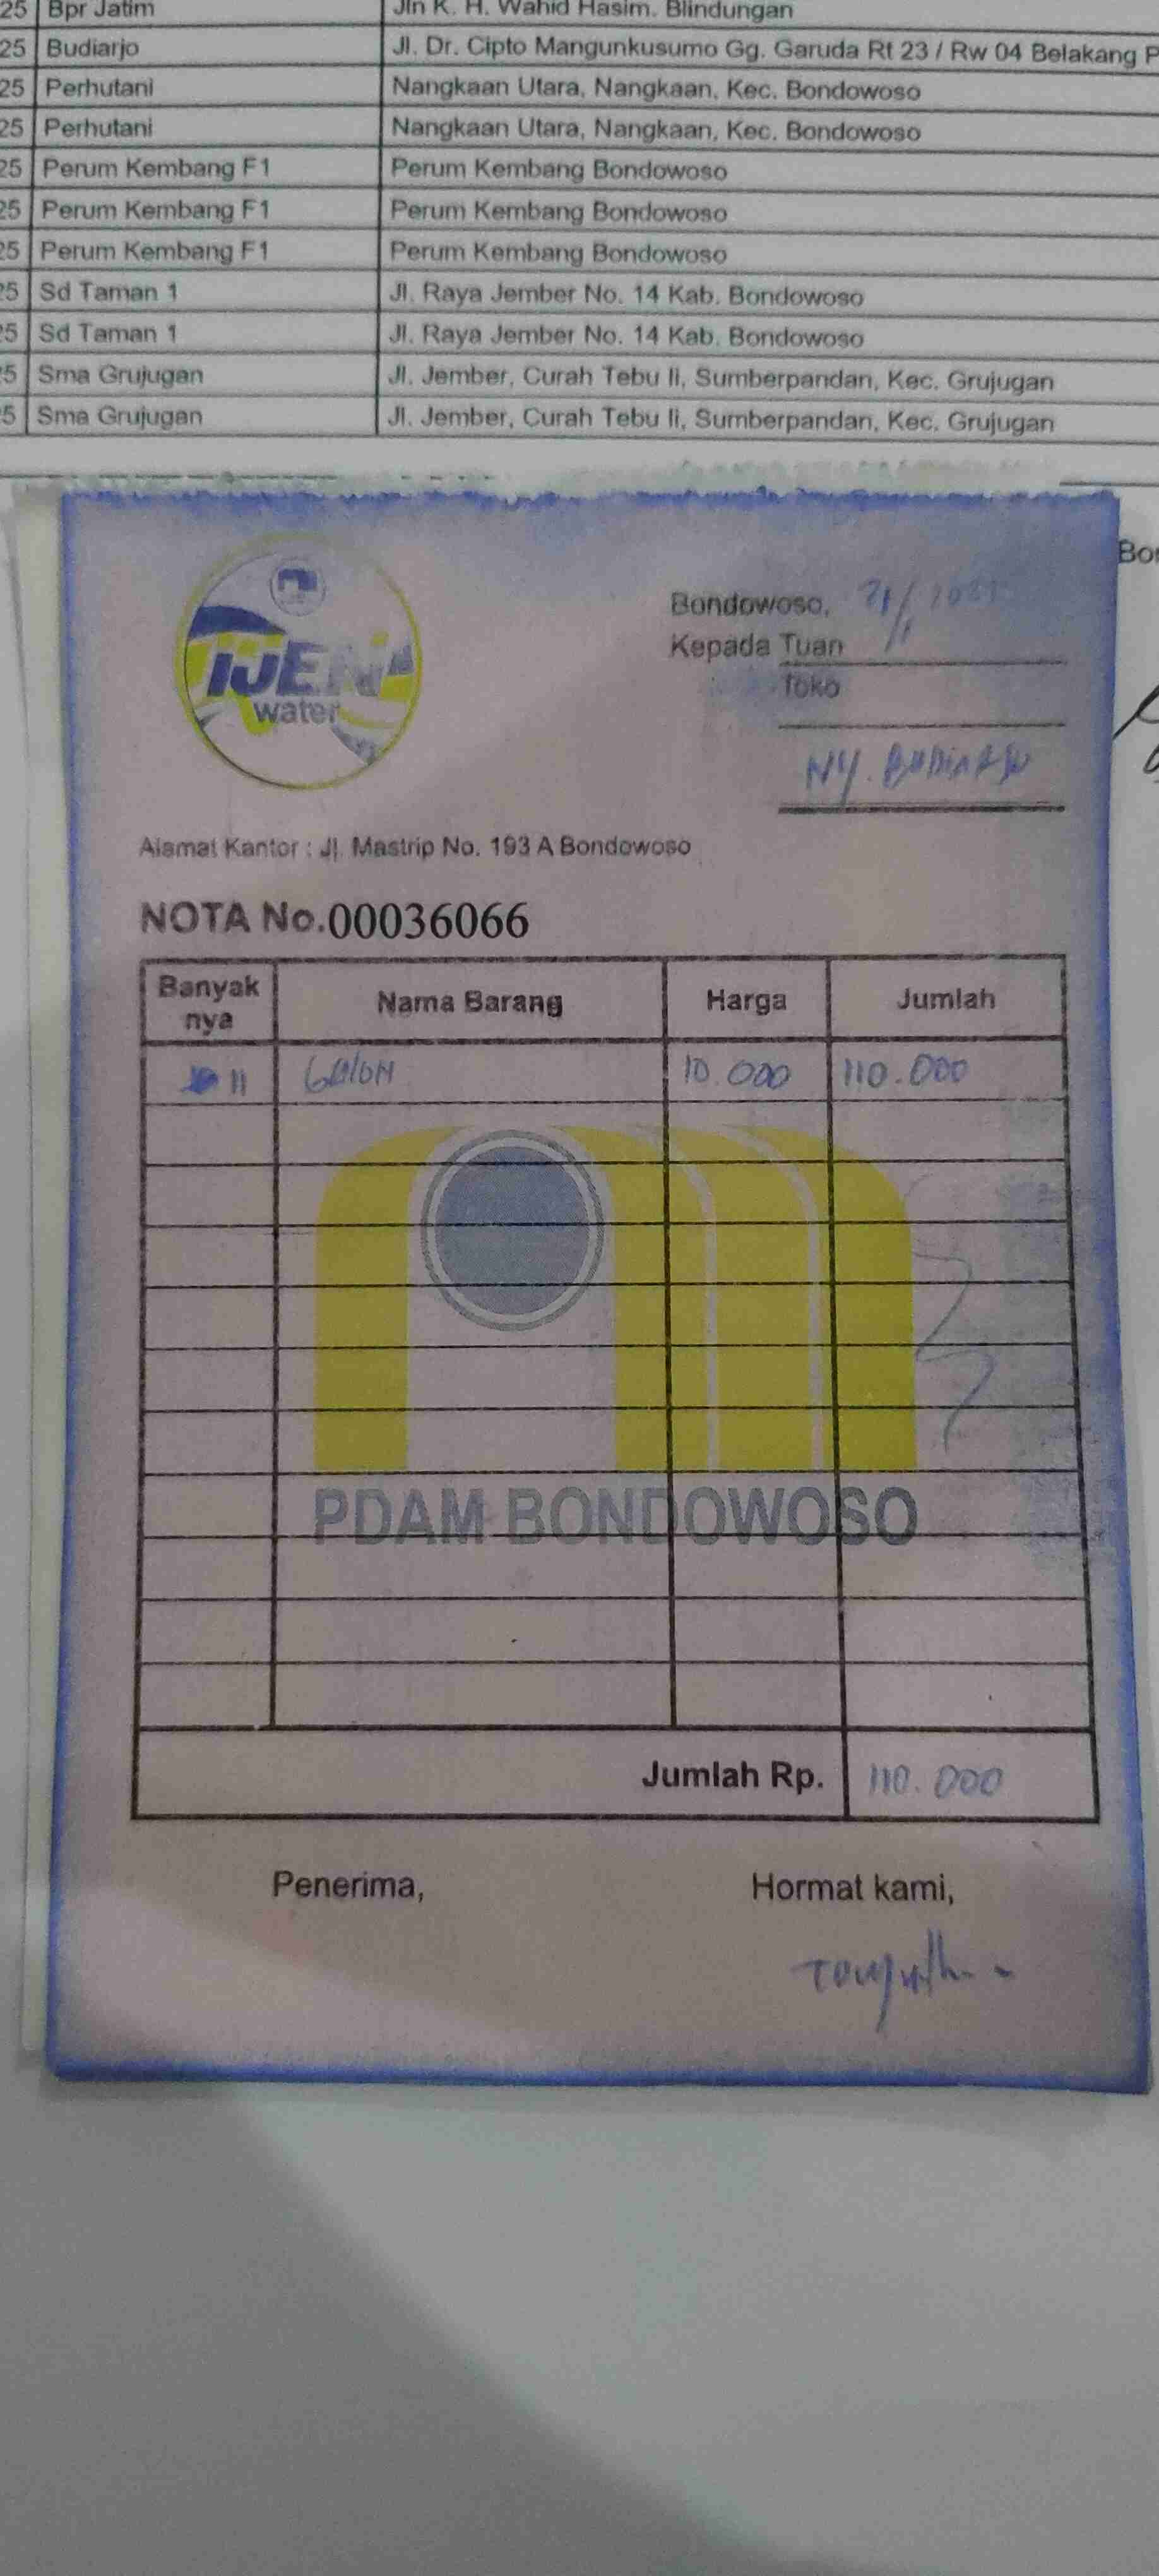 25 Bpr Jatim Jln K. H. Wahid Hasim. Blindungan
25 Budiarjo Jl. Dr. Cipto Mangunkusumo Gg. Garuda Rt 23 / Rw 04 Belakang P
25 Perhutani Nangkaan Utara, Nangkaan, Kec. Bondowoso
25 Perhutani Nangkaan Utara, Nangkaan, Kec. Bondowoso
25 Perum Kembang F1 Perum Kembang Bondowoso
25 Perum Kembang F1 Perum Kembang Bondowoso
25 Perum Kembang F1 Perum Kembang Bondowoso
25 Sd Taman 1 Jl. Raya Jember No. 14 Kab. Bondowoso
25 Sd Taman 1 Jl. Raya Jember No. 14 Kab. Bondowoso
5 Sma Grujugan Jl. Jember, Curah Tebu Ii, Sumberpandan, Kec. Grujugan
5 Sma Grujugan Jl. Jember, Curah Tebu Ii, Sumberpandan, Kec. Grujugan
Bon
IJEN
water
Bondowoso,
Kepada Tuan
Toko
NY.
Alamat Kantor : Jl. Mastrip No. 193 A Bondowoso
NOTA No.00036066
Banyak
nya
Nama Barang Harga Jumlah
11 GAlON 10.000 110.000
PDAM BONDOWOSO
Jumlah Rp. 110.000
Penerima, Hormat kami,